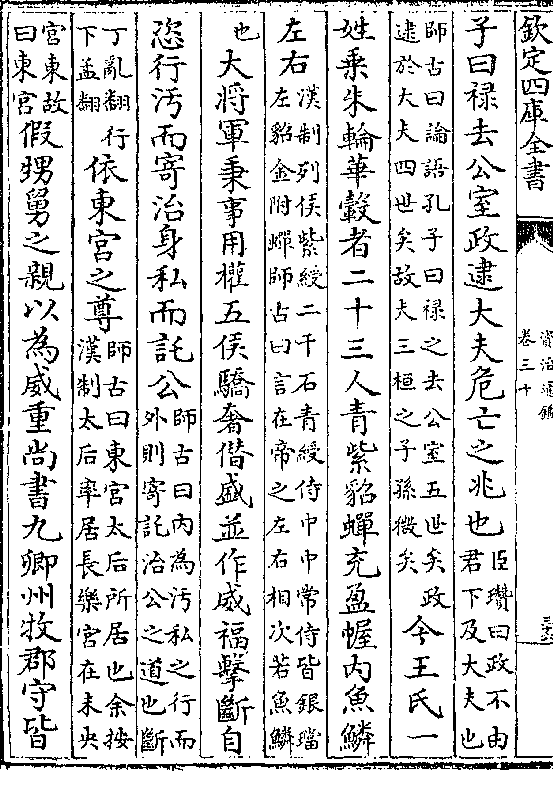 欽定四庫全書
資治通鑑
卷三十
子曰禄去公室政逮大夫危亡之兆也臣瓚曰政不由君下及大夫也
師古曰論語孔子曰禄之去公室五世矣政逮於大夫四世矣故夫三桓之子孫微矣今王氏一
姓乗朱輪華轂者二十三人青紫貂蟬充盈幄内魚鱗
左右漢制列侯紫綬二千石青綬侍中中常侍皆銀璫左貂金附蟬師古曰言在帝之左右相次若魚鱗
也大将軍秉事用權五侯驕奢僣盛並作威福擊斷自
恣行汚而寄治身私而託公師古曰内為汚私之行而外則寄託治公之道也斷
丁亂翻行下孟翻依東宫之尊師古曰東宫太后所居也余按漢制太后率居長樂宫在未央
宫東故曰東宫假甥舅之親以為威重尚書九卿州牧郡守皆